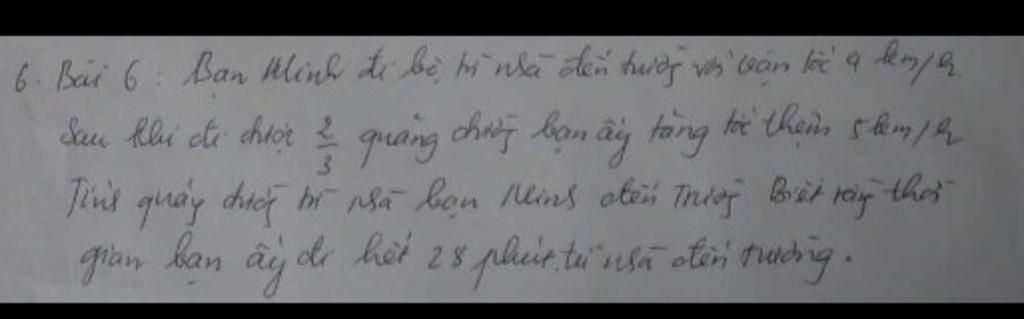 6. Bài 6: Bạn Minh đi bộ từ nhà đến trường với vận tốc 4 km/h
Sau khi đi được 2/3 quãng đường bạn ấy tăng tốc thêm 5 km/h
Tính quãng đường từ nhà bạn Minh đến Trường Biết rằng thời
gian bạn ấy đi hết 28 phút từ nhà đến trường.